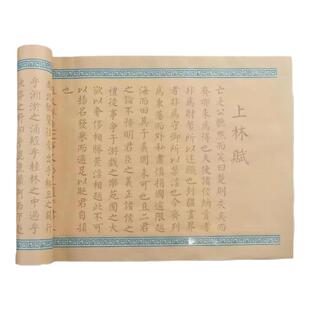 上林賦
亡是公听然而笑曰楚則失矣而
齊亦未為得也夫使諸侯納貢者
非為財幣所以述職也封疆畫界
者非為守禦所以禁淫也今齊列
為東藩而外私肅慎捐國踰限越
海而田其於義固未可也且二君
之論不務明君臣之義正諸侯之
禮徒事爭於游戲之樂苑囿之大
欲以奢侈相勝荒淫相越此不可
以揚名發譽而適足以貶君自損
也
乎洲淤之浦經乎桂林之中過乎